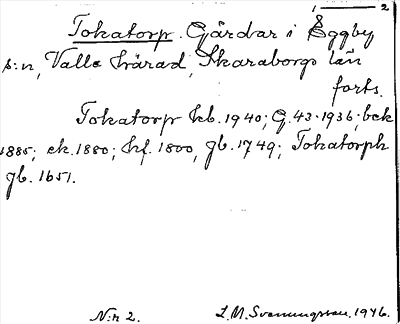 1 — 2
Tokatorp. Gårdar i Eggby
s:n, Valle härad, Skaraborgs län
forts.
Tokatorp kb. 1940; G. 43. 1936; bek
1885; ek. 1880; hf. 1800, gb. 1749; Tokatorph
gb. 1651.
N:r 2. L. M. Svanungsson. 1946.